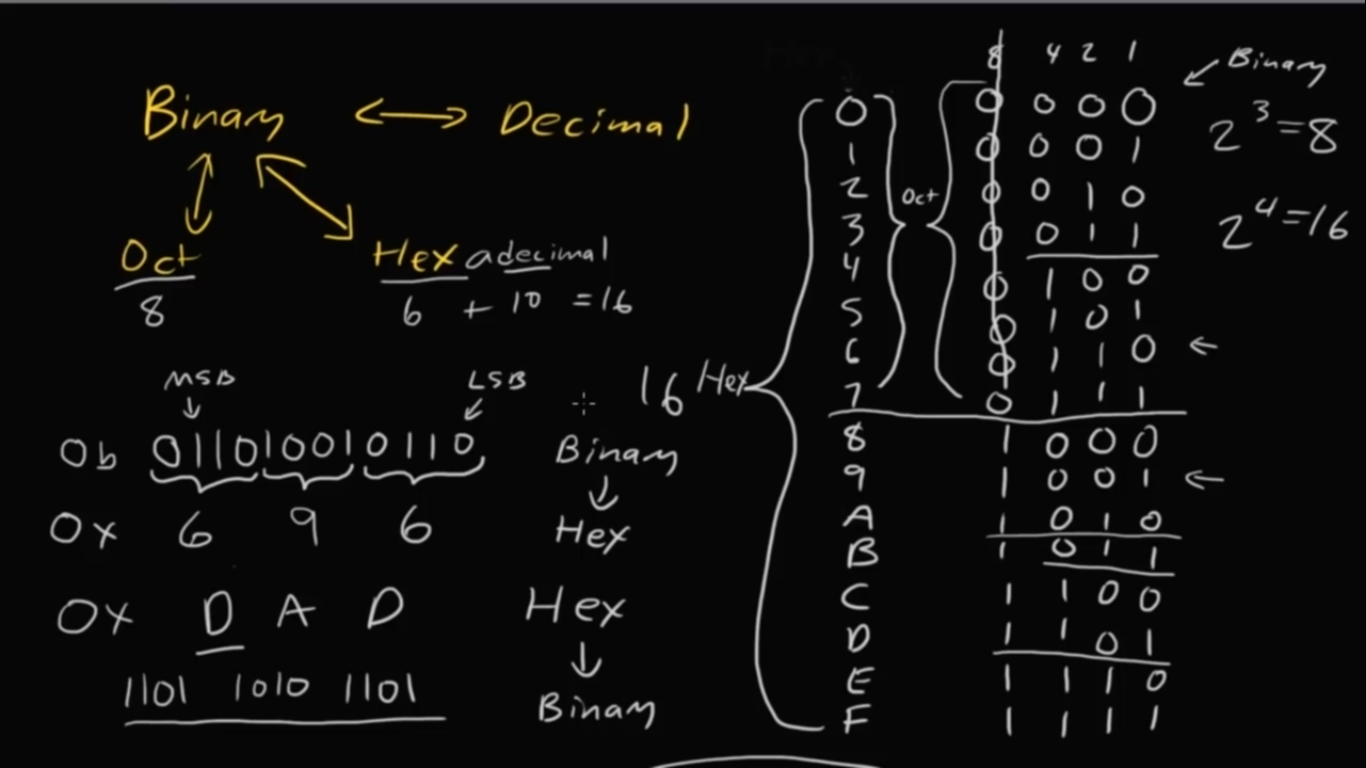 Binary <-> Decimal
Oct
8
Hexadecimal
6 + 10 = 16
MSB LSB
0b 011010010110 Binary
0x 6 9 6 Hex
0x D A D Hex
1101 1010 1101 Binary
16 Hex
Oct
8 4 2 1
Binary
0 0 0 0 0
1 0 0 0 1
2 0 0 1 0
3 0 0 1 1
4 0 1 0 0
5 0 1 0 1
6 0 1 1 0
7 0 1 1 1
8 1 0 0 0
9 1 0 0 1
A 1 0 1 0
B 1 0 1 1
C 1 1 0 0
D 1 1 0 1
E 1 1 1 0
F 1 1 1 1
2³=8
2⁴=16